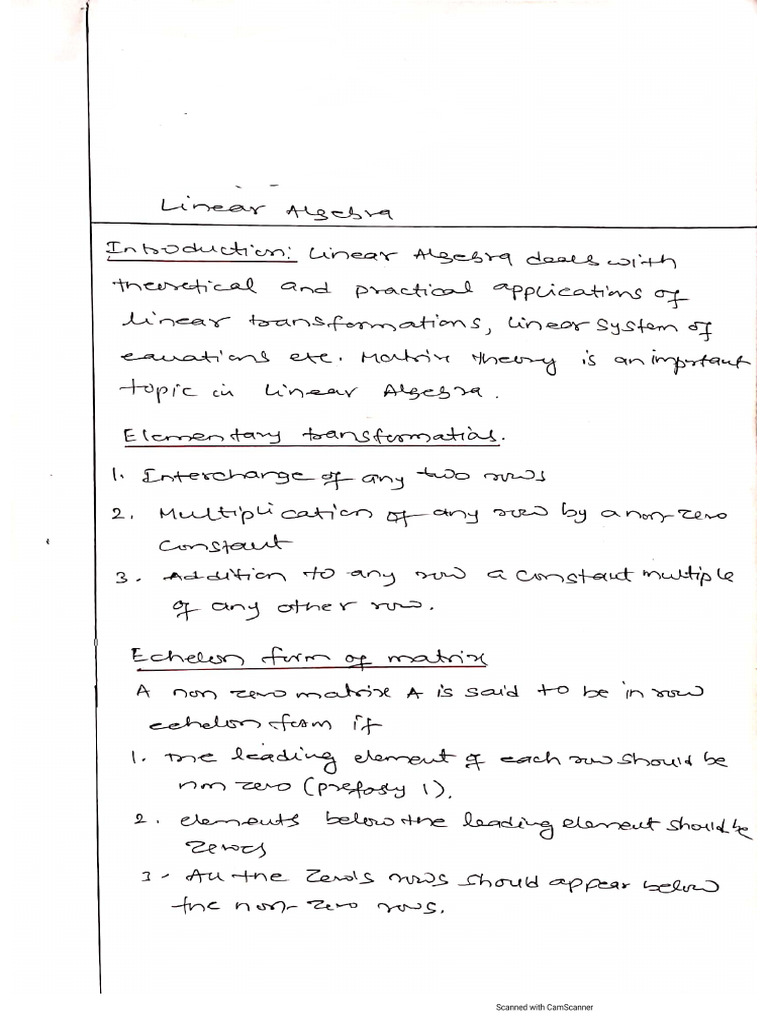 Linear Algebra
Introduction: Linear Algebra deals with
theoretical and practical applications of
linear transformations, linear system of
equations etc. Matrix theory is an important
topic in Linear Algebra.
Elementary transformatios.
1. Interchange of any two rows
2. Multiplication of any row by a non-zero
constant
3. Addition to any row a constant multiple
of any other row.
Echelon form of matrix
A non zero matrix A is said to be in row
echelon form if
1. The leading element of each row should be
non zero (prefarly 1).
2. elements below the leading element should be
zeroes
3 - All the zero's rows should appear below
the non-zero rows.
Scanned with CamScanner